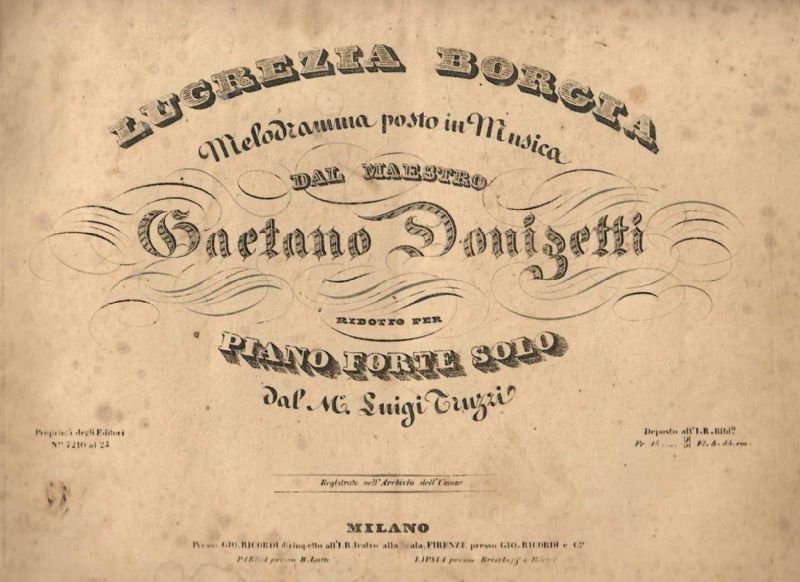 LUCREZIA BORGIA
Melodramma posto in Musica
DAL MAESTRO
Gaetano Donizetti
RIDOTTO PER
PIANO FORTE SOLO
dal M. Luigi Truzzi
Proprietà degli Editori
N.os 7210 al 24
Deposto all'I.R. Bibl.a
Fr. 15
Registrato nell'Archivio dell'Unione
MILANO
Presso GIO. RICORDI dirimpetto all'I.R. Teatro alla Scala. FIRENZE presso GIO. RICORDI e C.o
PARIGI presso B. Latte LIPSIA presso Breitkopf e Härtel